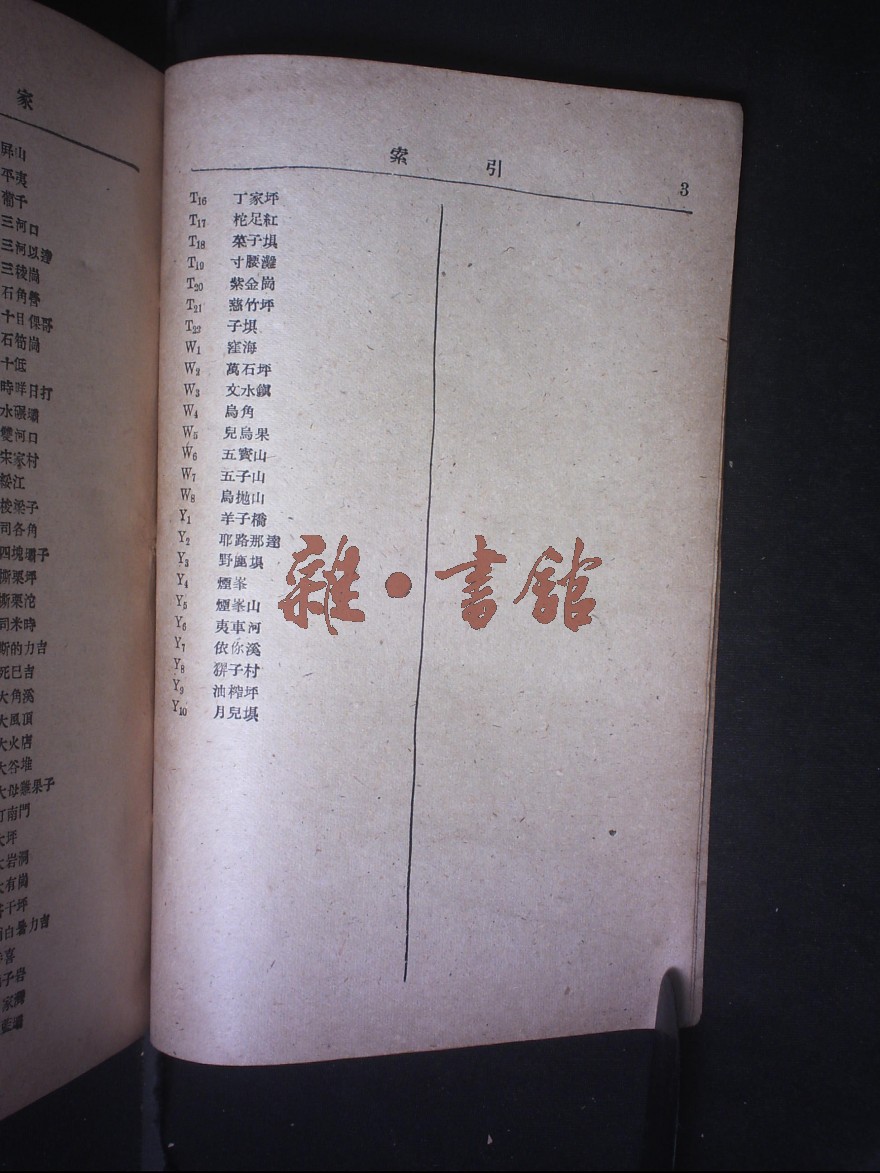 家
屏山
平夷
三河口
三河以達
三稜崗
石角營
石筍崗
十低
時咩日打
水碾壩
雙河口
宋家村
綏江
梭梁子
司各角
四塊壩子
撕栗坪
撕栗沱
司米時
斯的力吉
死巴吉
大角溪
大風頂
大火店
大谷堆
大母雞果子
打南門
大坪
大岩洞
大有崗
索引 3
T16 丁家坪
T17 柁足紅
T18 菜子垻
T19 寸腰灘
T20 紫金崗
T21 慈竹坪
T22 子垻
W1 窪海
W2 萬石坪
W3 文水鎭
W4 烏角
W5 兒烏果
W6 五寳山
W7 五子山
W8 烏抛山
Y1 羊子橋
Y2 耶路那達
Y3 野鹿垻
Y4 煙峯
Y5 煙峯山
Y6 夷車河
Y7 依你溪
Y8 子村
Y9 油榨坪
Y10 月兒垻
雜·書館